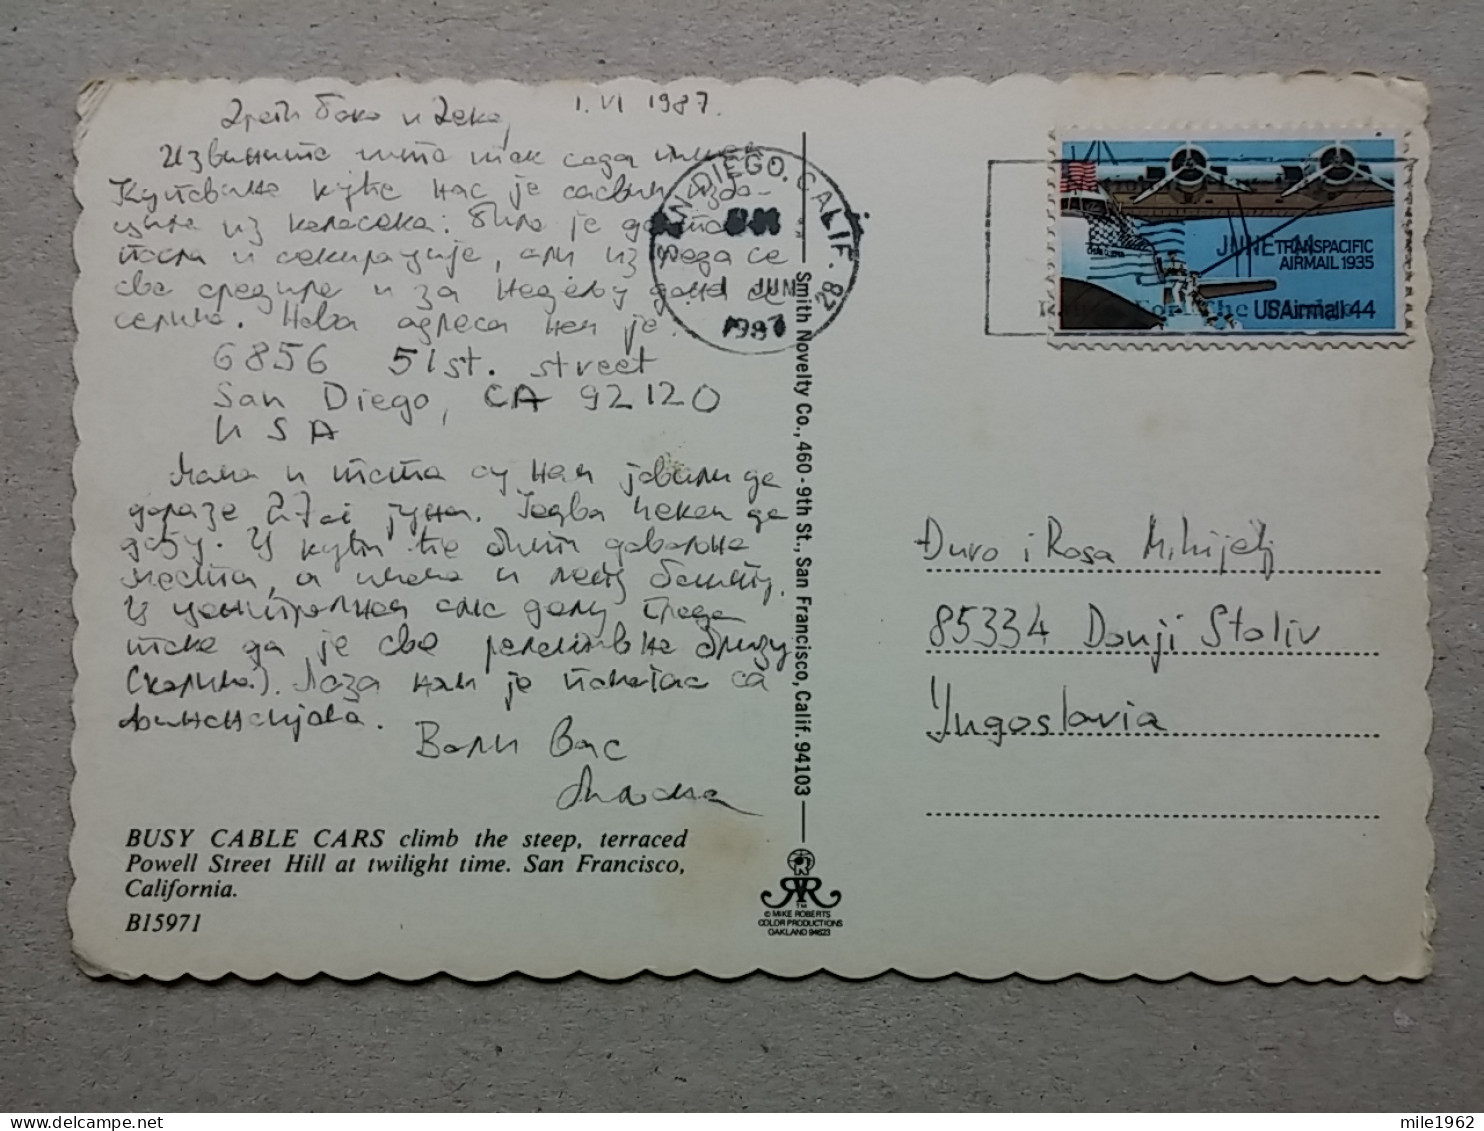 Драги бако и деко,
1. VI 1987.
Извините што тек сада пишем
Куповина куће нас је сасвим изба-
цила из колосека. Било је доста
посла и секирације, али из реда се
све средило и за недељу дана се
селимо. Нова адреса нам је:
6856 51st. street
San Diego, CA 92120
USA
Мама и тата су нам јавили да
долазе 27ог јуна. Једва чекам да
дођу. У кући ће бити довољно
места, а имамо и лепу башту.
У централном смо делу града
тако да је све релативно близу
(школа..). Лоза нам је помогао са
финансијама.
Воли Вас
SAN DIEGO, CALIF. 28
1 JUN
1987
JUNE
TRANSPACIFIC
AIRMAIL 1935
USAirmail 44
Smith Novelty Co., 460-9th St., San Francisco, Calif. 94103
Đuro i Rosa Mihijelj
85334 Donji Stoliv
Yugoslavia
BUSY CABLE CARS climb the steep, terraced
Powell Street Hill at twilight time. San Francisco,
California.
B15971
TM
© MIKE ROBERTS
COLOR PRODUCTIONS
OAKLAND 94623
mile1962